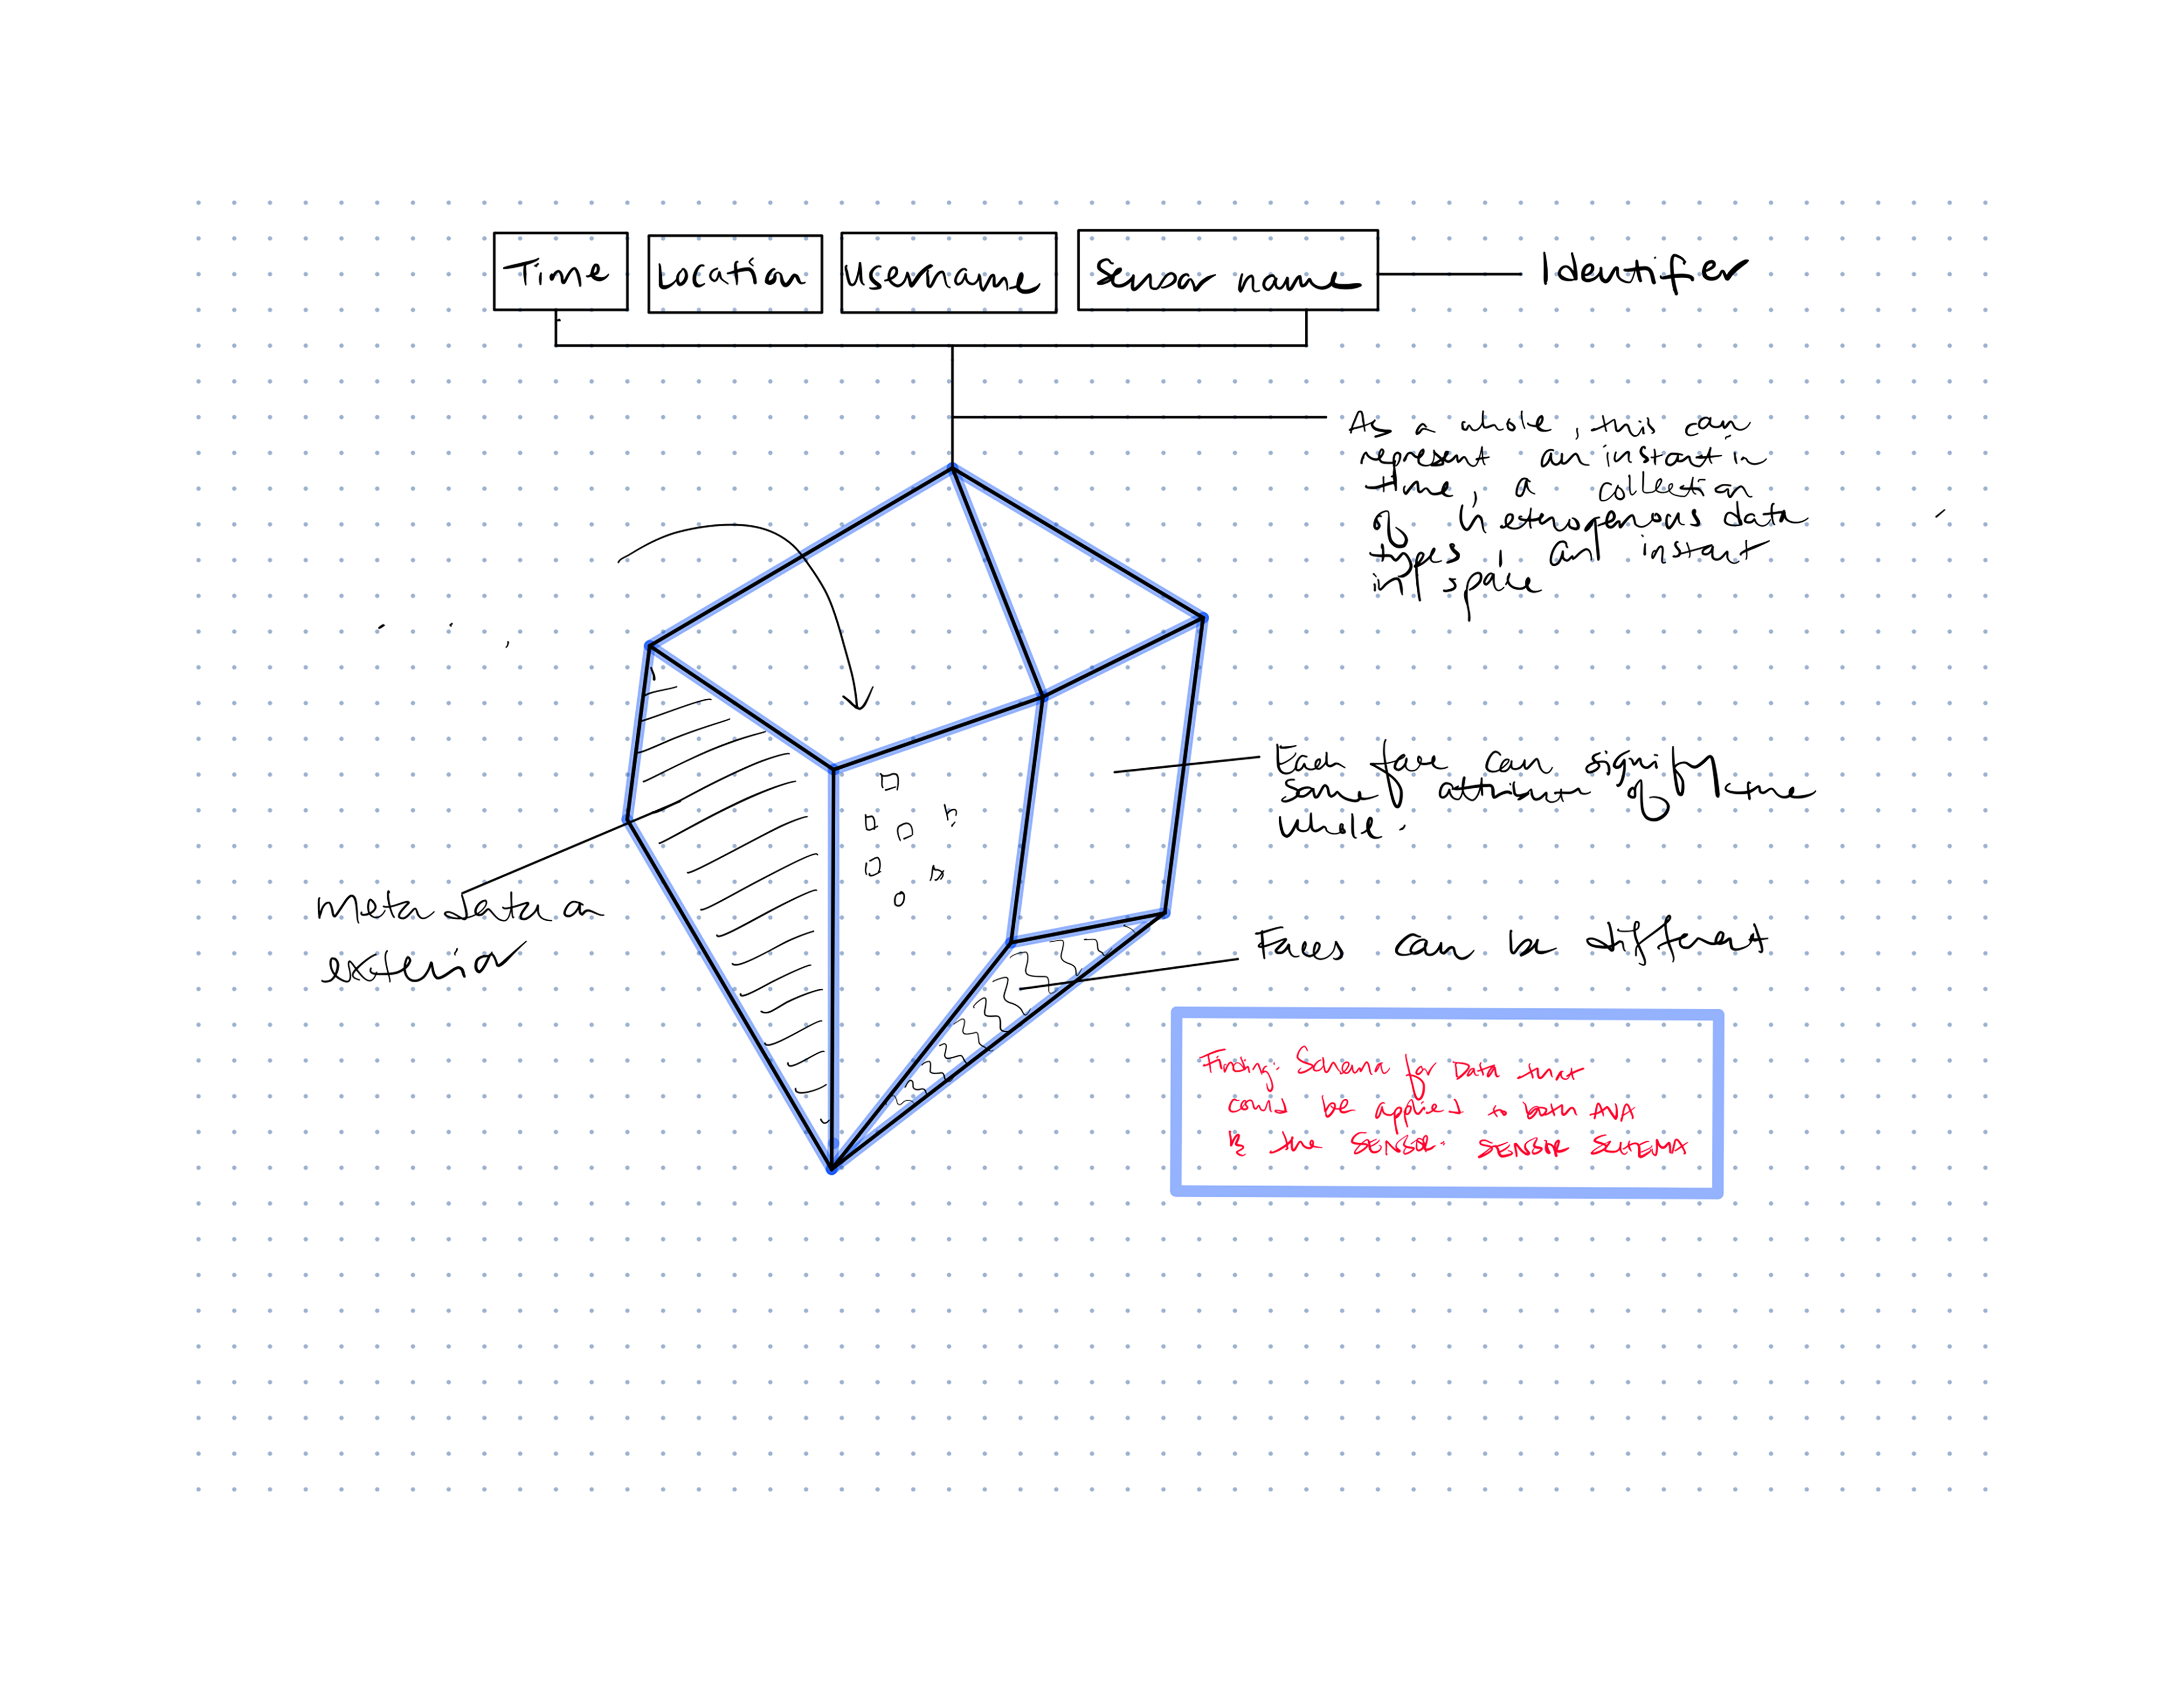 Time Location Username Sensor name Identifier
As a whole, this can
represent an instant in
time, a collection
of hetrogenous data
types, an instant
in space
Each face can signify
some attribute of the
whole.
Meta data on
exterior
Faces can be different
Finding: Schema for Data that
could be applied to both AVA
& the SENSOR. SENSOR SCHEMA